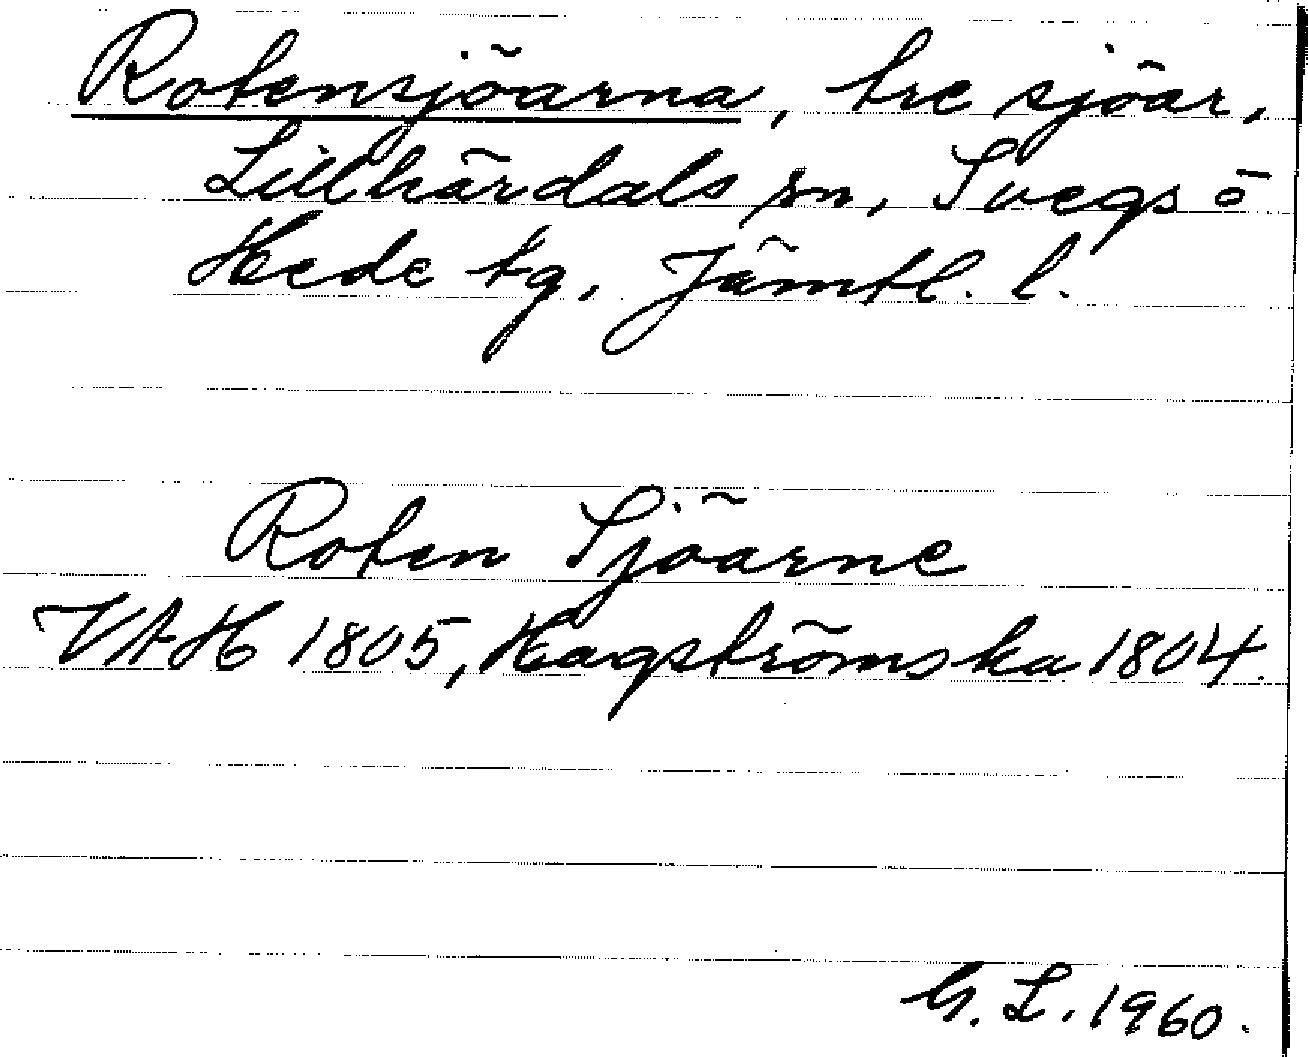 Rotensjöarna, tre sjöar,
Lillhärdals sn, Svegs o
Hede tg, Jämtl. l.
Roten Sjöarne
VAH 1805, Hagströmska 1804.
G. L. 1960.